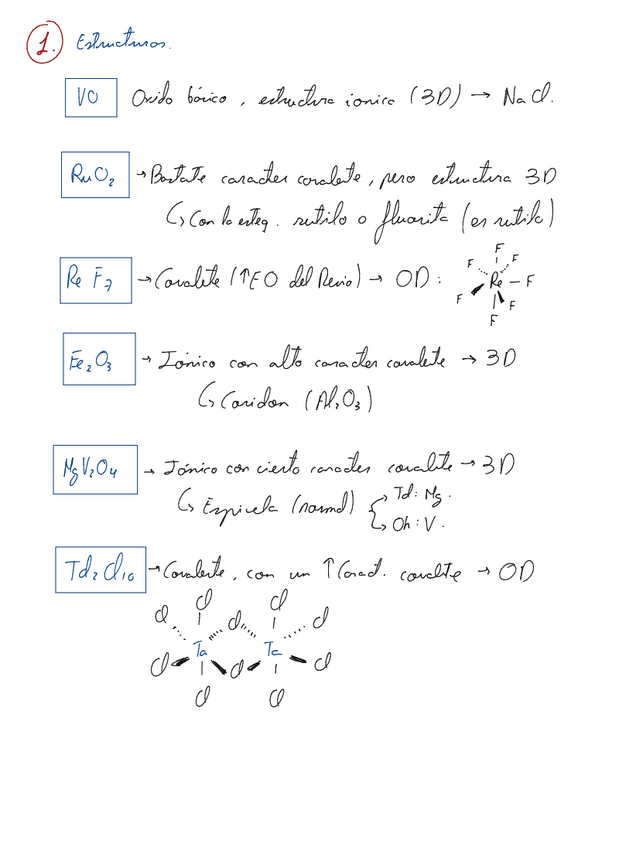 1. Estructuras.
VO Oxido básico, estructura ionica (3D) → NaCl.
RuO₂ → Bastate caracter covalete, pero estructura 3D
↳ Con la esteq. rutilo o fluorita (es rutilo)
ReF₇ → Covalete (↑EO del Renio) → OD:
F
F F
Re – F
F F
F
Fe₂O₃ → Iónico con alto caracter covalete → 3D
↳ Coridon (Al₂O₃)
MgV₂O₄ → Iónico con cierto caracter covalete → 3D
↳ Espinela (normal) → Td: Mg.
↳ Oh: V.
Td₂Cl₁₀ → Covalente, con un ↑ Caract. covalete → OD
Cl Cl
Cl Cl Cl
Ta Ta
Cl Cl Cl
Cl Cl